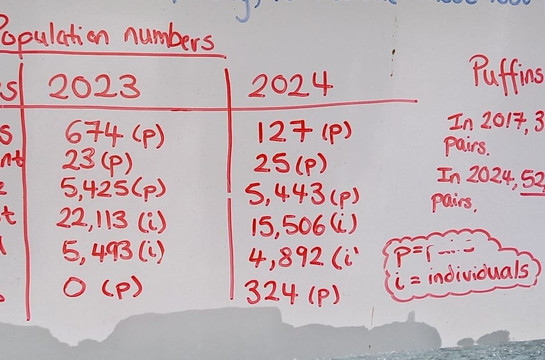 Population numbers
2023 2024
674 (p) 127 (p)
23 (p) 25 (p)
5,425 (p) 5,443 (p)
22,113 (i) 15,506 (i)
5,493 (i) 4,892 (i
0 (p) 324 (p)
Puffins
In 2017, 3
pairs.
In 2024, 52,
pairs.
p =
i = individuals